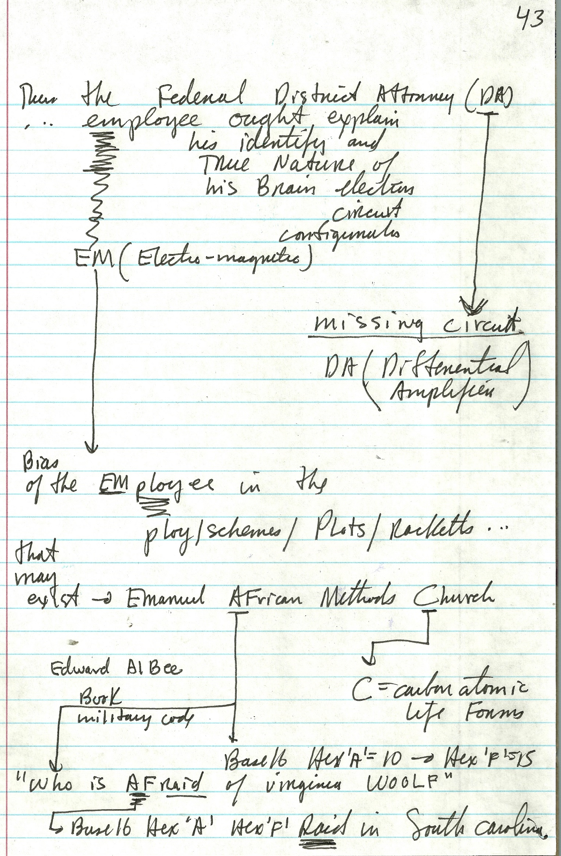 43
Then the Federal District Attorney (DA)
... employee ought explain
his identify and
True Nature of
his Brain electron
circuit
EM (Electro-magnetic)
missing circuit
DA (Differential
Amplifier)
Bias
of the EMployee in the
ploy/schemes/ Plots/ Racketts ...
that
may
exist → Emanuel AFrican Methods Church
Edward AlBee
Book
military code
C = carbon atomic
life Forms
Base 16 Hex 'A' = 10 → Hex 'F' = 15
"Who is AFraid of virginia WOOLF"
Base 16 Hex 'A' Hex 'F' Raid in South carolina.